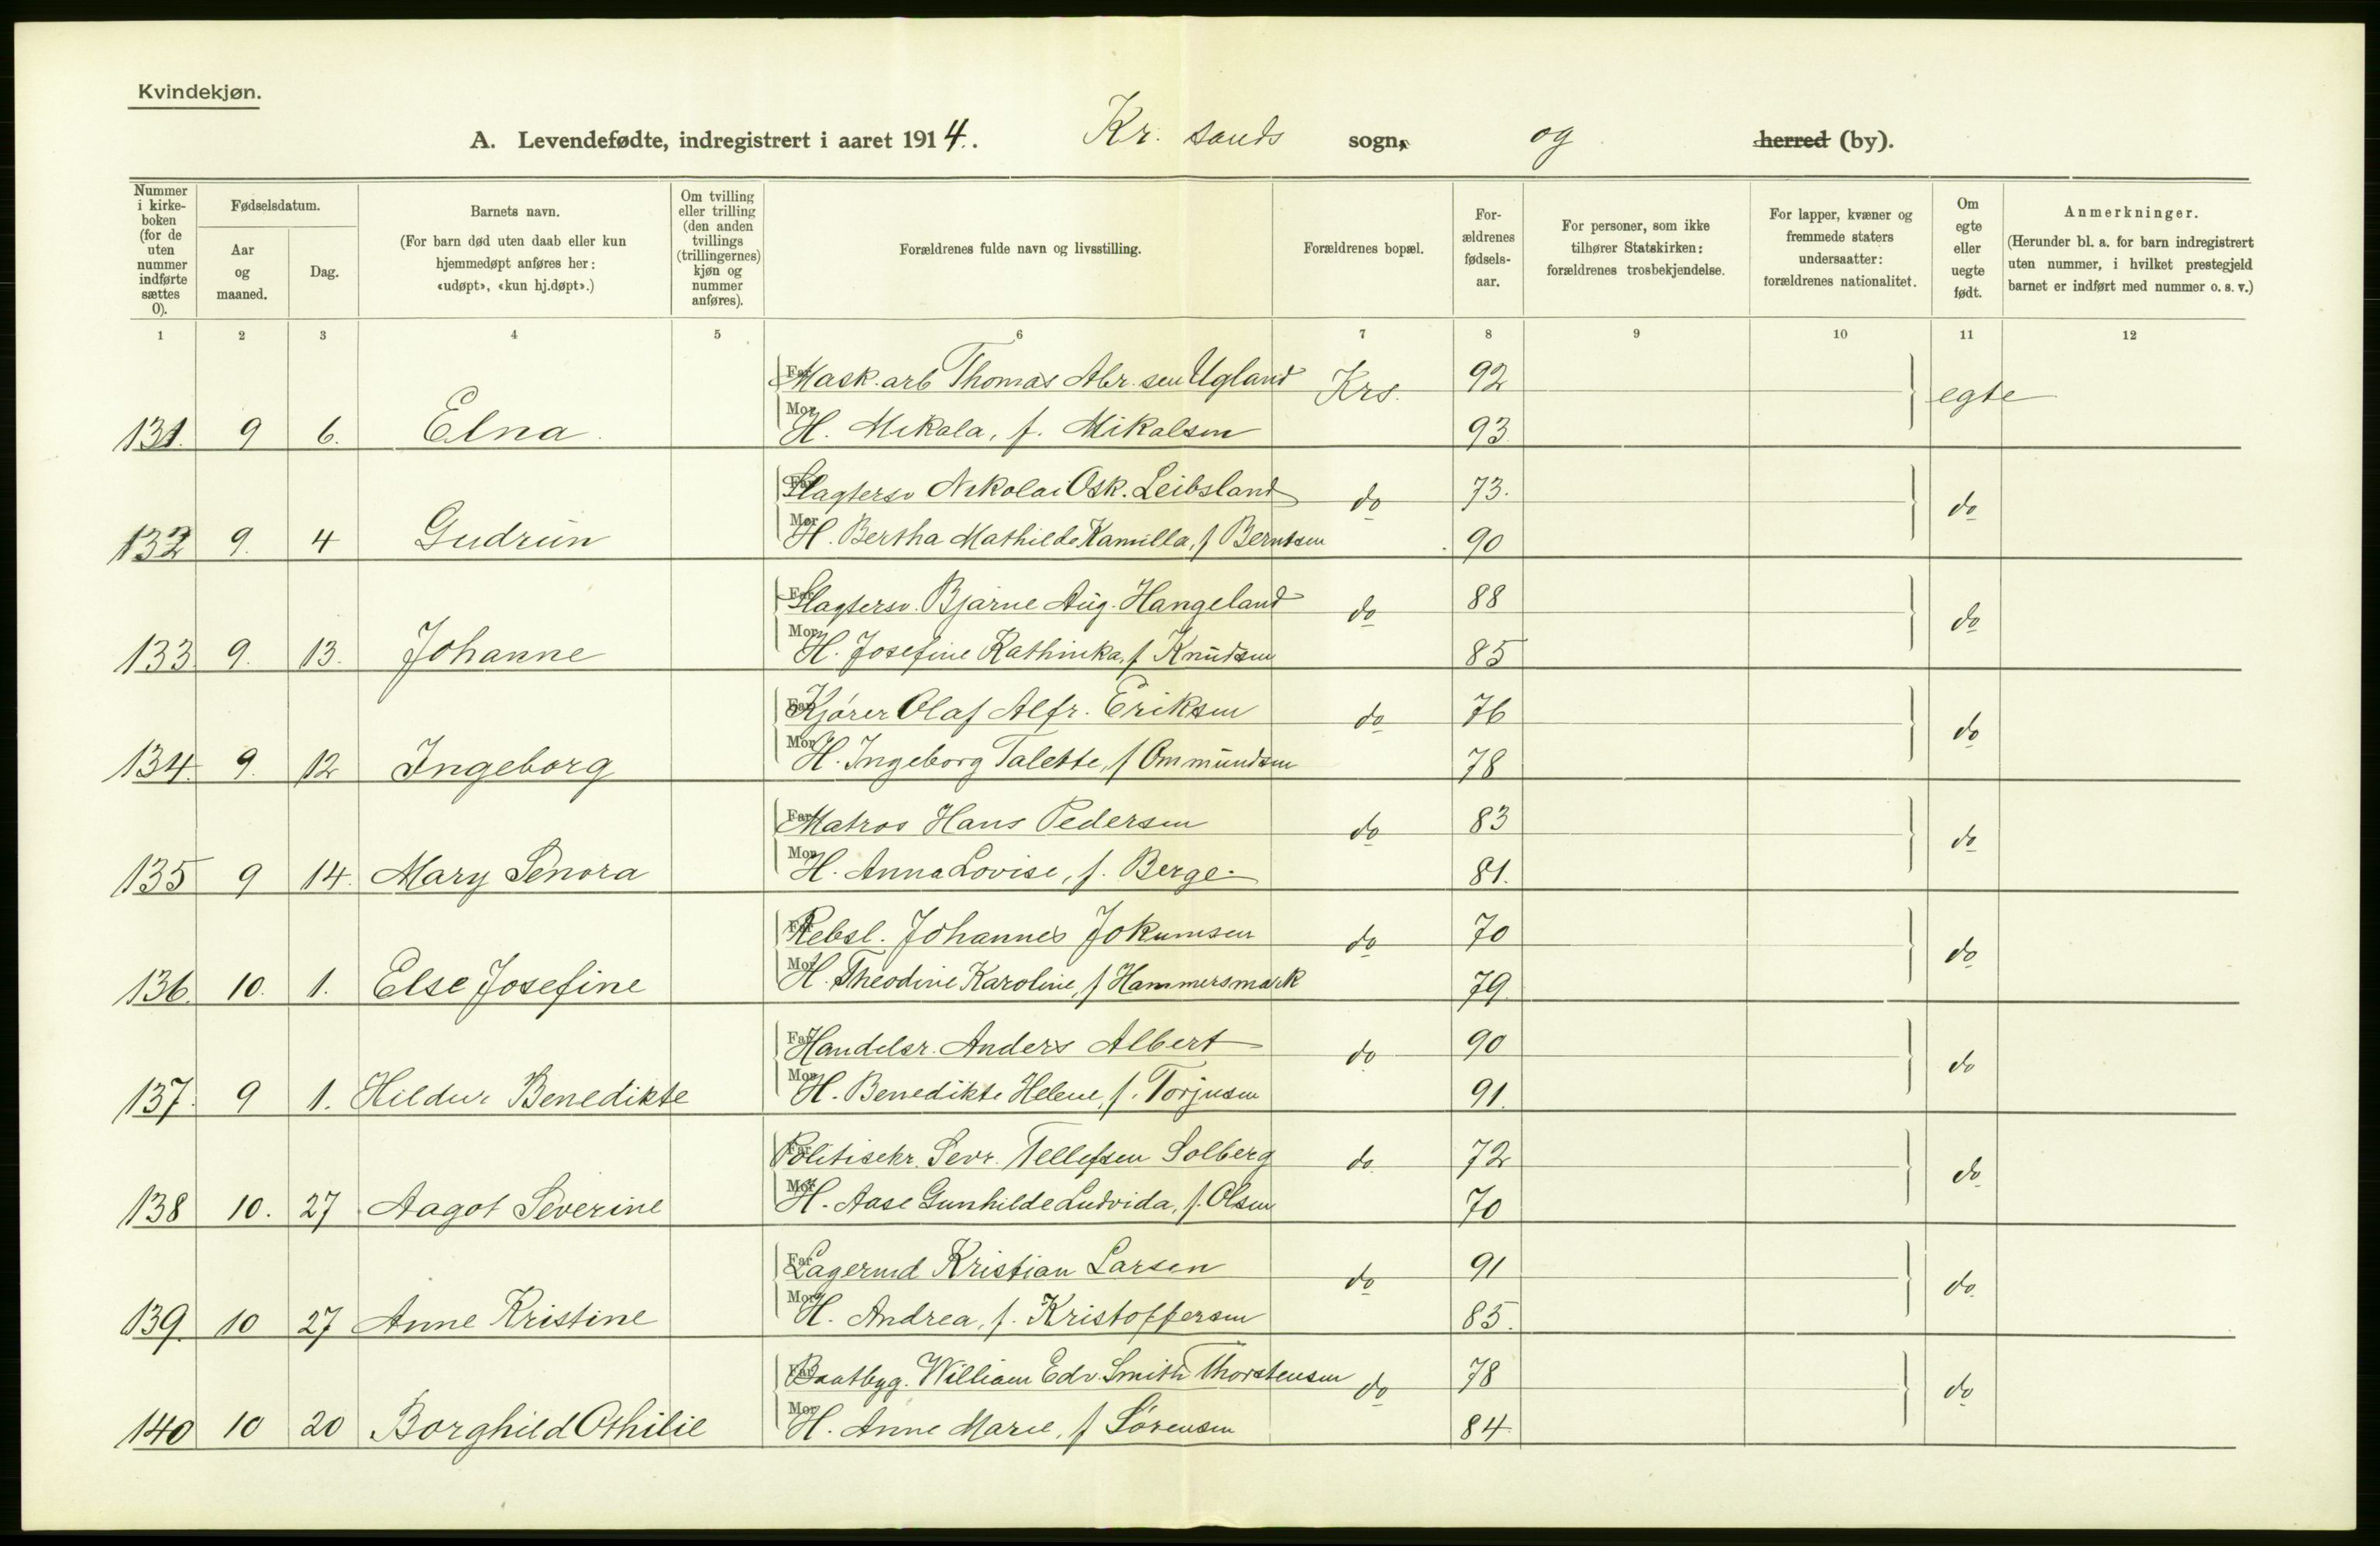 Kvindekjøn.
A. Levendefødte, indregistrert i aaret 1914. Kr. sands sogn, og herred (by).
Nummer i kirkeboken (for de uten nummer indførte sættes 0).
Fødselsdatum.
Aar og maaned.
Dag.
Barnets navn.
(For barn død uten daab eller kun hjemmedøpt anføres her: «udøpt», «kun hj.døpt».)
Om tvilling eller trilling (den anden tvillings (trillingernes) kjøn og nummer anføres).
Forældrenes fulde navn og livsstilling.
Forældrenes bopæl.
Forældrenes fødselsaar.
For personer, som ikke tilhører Statskirken: forældrenes trosbekjendelse.
For lapper, kvæner og fremmede staters undersaatter: forældrenes nationalitet.
Om egte eller uegte født.
Anmerkninger.
(Herunder bl. a. for barn indregistrert uten nummer, i hvilket prestegjeld barnet er indført med nummer o. s. v.)
1 2 3 4 5 6 7 8 9 10 11 12
Far Mask.arb Thomas Abr.sen Ugland Krs. 92 egte
131. 9 6. Elna Mor H. Mikala, f. Mikalsen 93
Far Slagtersv Nikolai Osk. Leibsland do 73. do
132 9. 4 Gudrun Mor H. Bertha Mathilde Kamilla, f Berntsen 90
Far Slagtersv. Bjarne Aug. Hangeland do 88 do
133 9. 13. Johanne Mor H. Josefine Kathinka, f Knudsen 85
Far Kjører Olaf Alfr. Eriksen do 76 do
134. 9. 12 Ingeborg Mor H. Ingeborg Talette, f Ommundsen 78
Far Matros Hans Pedersen do 83 do
135 9 14. Mary Senora Mor H. Anna Lovise, f. Berge. 81.
Far Rebsl. Johannes Jokumsen do 70 do
136. 10. 1. Else Josefine Mor H. Theodine Karoline, f Hammersmark 79.
Far Handelsr. Anders Albert do 90 do
137. 9 1. Hildur Benedikte Mor H. Benedikte Helene, f. Torjusen 91.
Far Politisekr. Sevr. Tellefsen Solberg do 72 do
138 10. 27 Aagot Severine Mor H. Aase Gunhilde Ludvida, f. Olsen 70
Far Lagermd Kristian Larsen do 91 do
139. 10 27 Anne Kristine Mor H. Andrea, f. Kristoffersen 85.
Far Baatbyg. William Edv. Smith Thorstensen do 78 do
140 10 20 Borghild Othilie Mor H. Anne Marie, f Sørensen 84